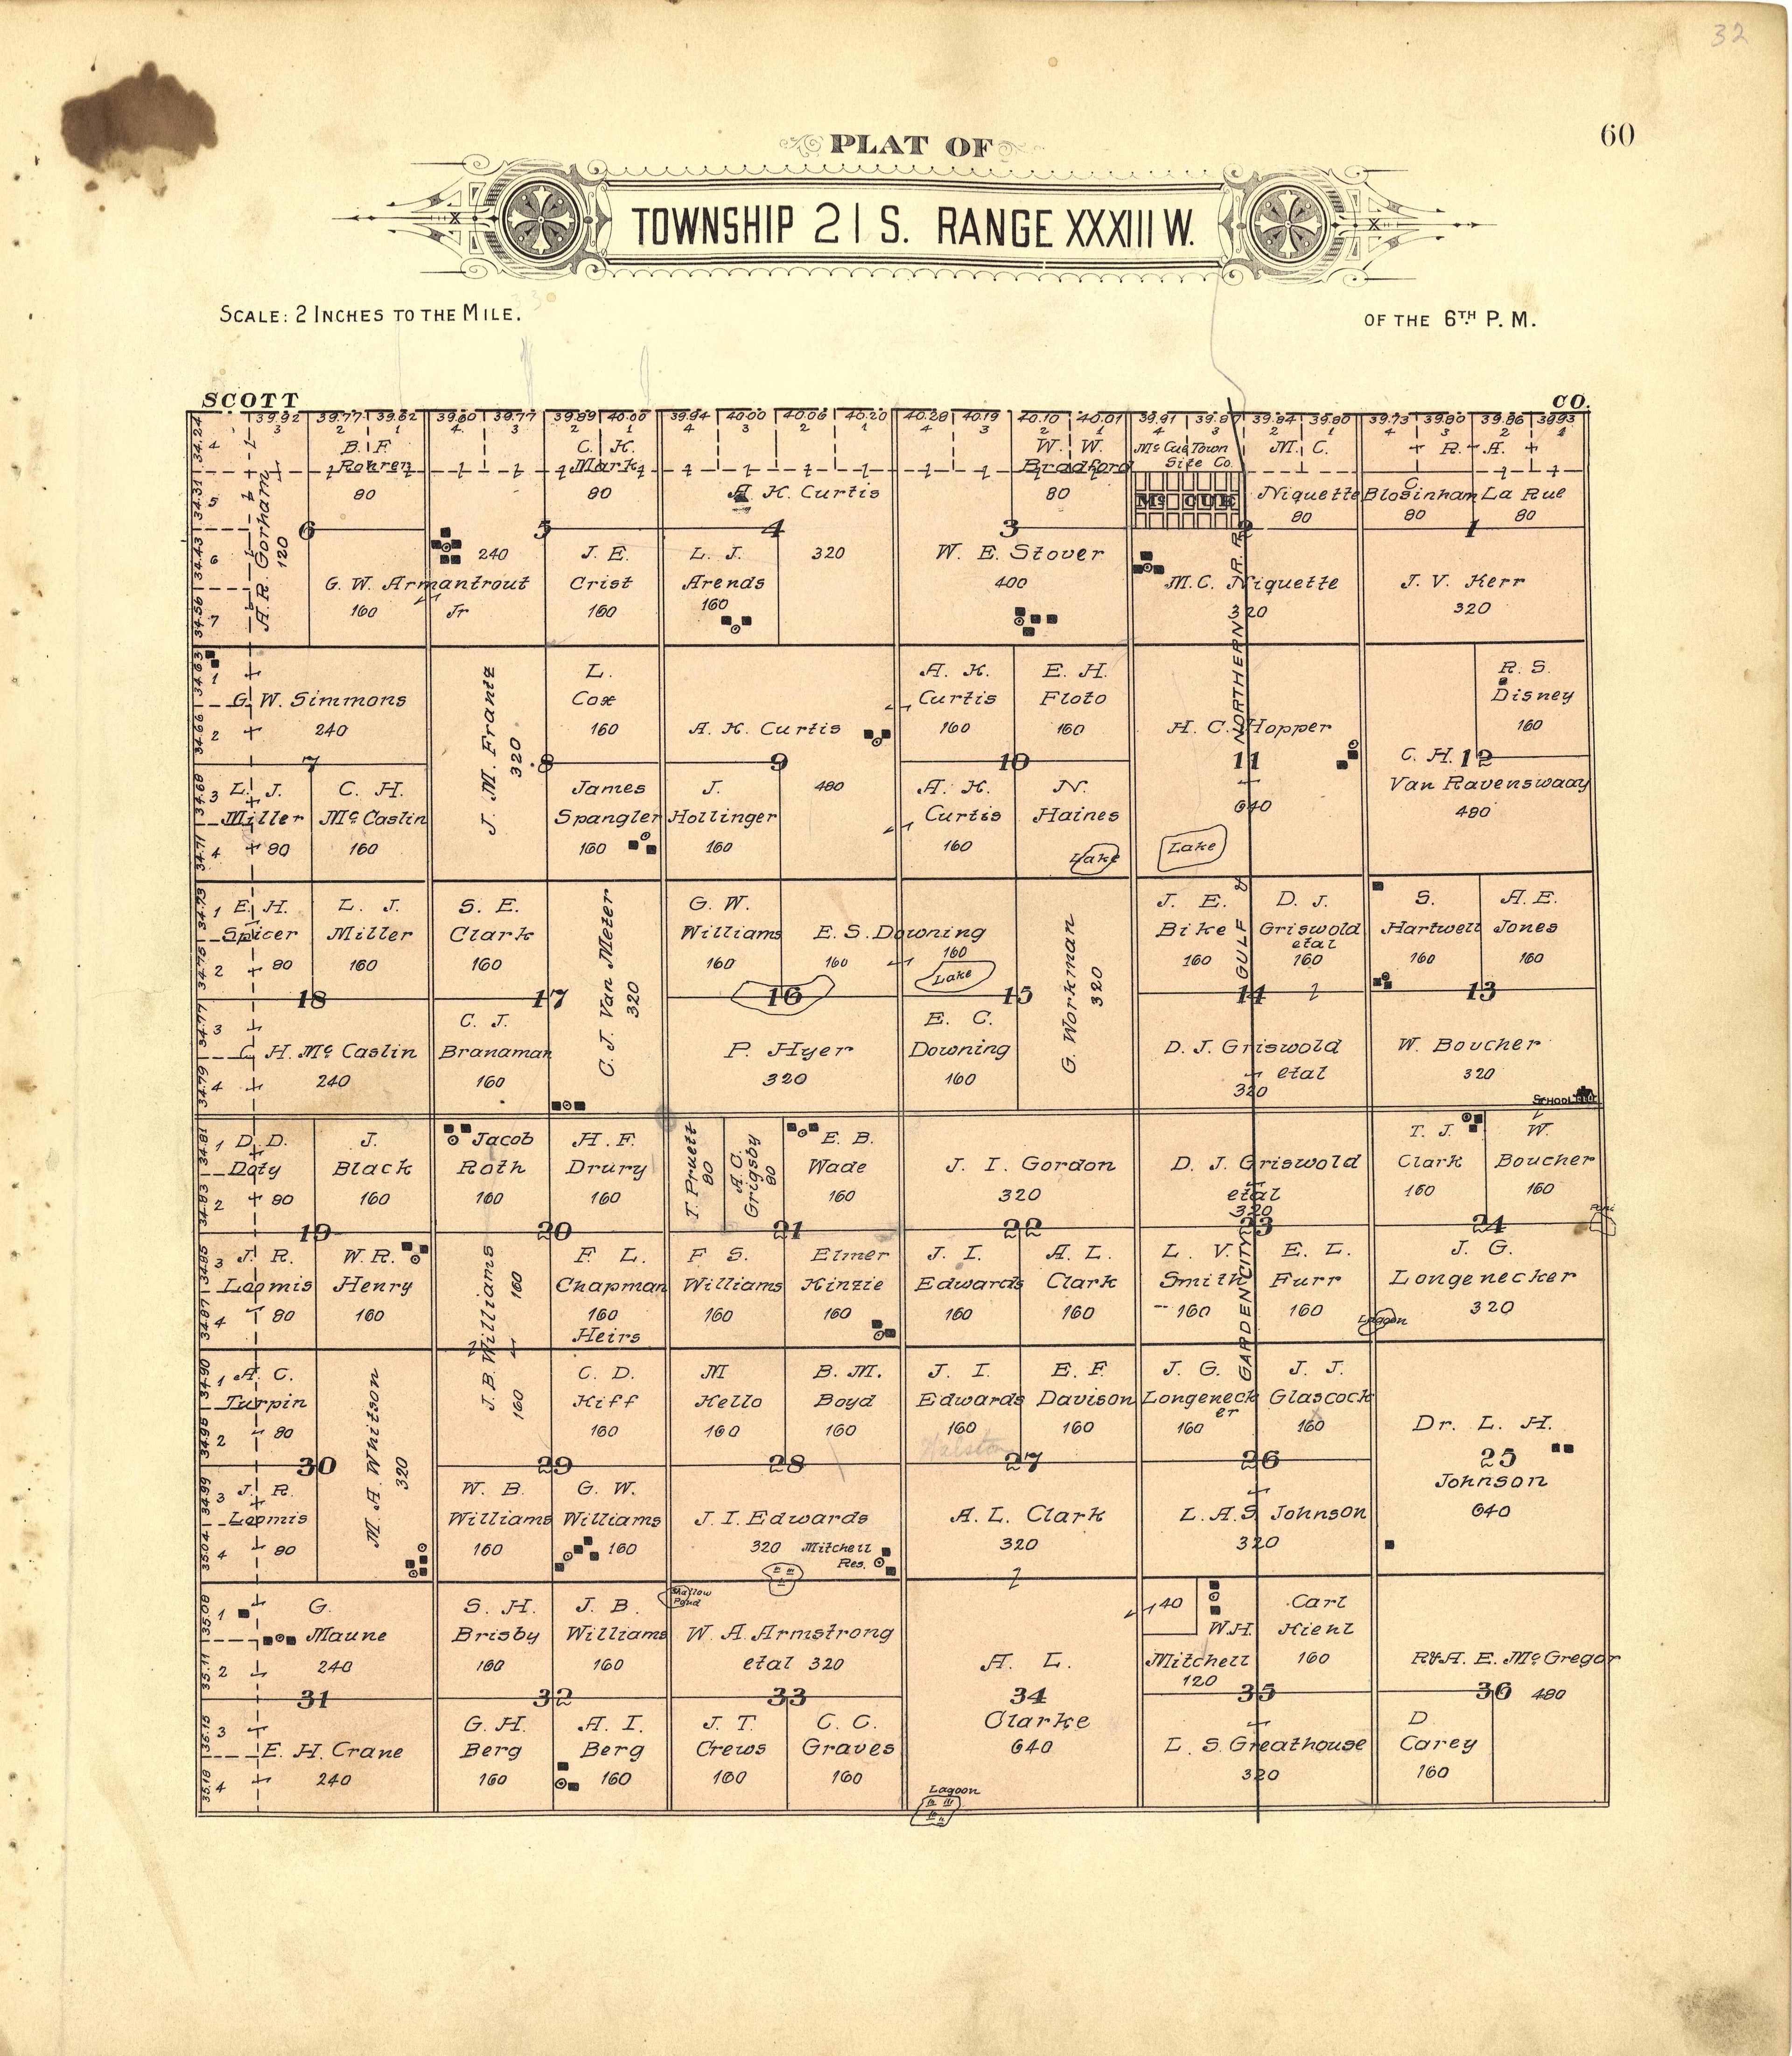 32
60
PLAT OF
TOWNSHIP 21 S. RANGE XXXIII W.
SCALE: 2 INCHES TO THE MILE.
OF THE 6TH P. M.
SCOTT
CO.
39.92 39.77 39.62 39.60 39.77 39.89 40.00 39.94 40.00 40.06 40.20 40.28 40.19 40.10 40.01 39.91 39.87 39.84 39.80 39.73 39.80 39.86 39.93
3 2 1 4 3 2 1 4 3 2 1 4 3 2 1 4 3 2 1 4 3 2 1
34.24 4
34.31 5
34.43 6
34.56 7
A. R. Gorham
120
B. F.
Rohrer
80
6
C. K.
Mark
80
5
A. K. Curtis
4
320
W. W.
Bradford
80
3
Mc Cue Town
Site Co.
Mc CUE
M. C.
Niquette
80
2
R. A.
C.
Blosinham
80
La Rue
80
1
G. W. Armantrout
Jr
160
240
J. E.
Crist
160
L. J.
Arends
160
W. E. Stover
400
M. C. Niquette
320
J. V. Kerr
320
GARDEN CITY GULF & NORTHERN R. R.
34.63 1
34.66 2
34.68 3
34.71 4
G. W. Simmons
240
7
L. J.
Miller
80
C. H.
Mc Caslin
160
J. M. Frantz
320
8
L.
Cox
160
James
Spangler
160
A. K. Curtis
9
480
J.
Hollinger
160
A. K.
Curtis
160
E. H.
Floto
160
10
A. K.
Curtis
160
N.
Haines
Lake
H. C. Hopper
11
640
Lake
R. S.
Disney
160
C. H. 12
Van Ravenswaay
480
34.73 1
34.75 2
34.77 3
34.79 4
E. H.
Spicer
80
L. J.
Miller
160
18
C. H. Mc Caslin
240
S. E.
Clark
160
17
C. J.
Branaman
160
C. J. Van Meter
320
G. W.
Williams
160
E. S. Downing
160
160
Lake
16
P. Hyer
320
15
E. C.
Downing
160
G. Workman
320
J. E.
Bike
160
D. J.
Griswold
etal
160
14
D. J. Griswold
etal
320
S.
Hartwell
160
A. E.
Jones
160
13
W. Boucher
320
SCHOOL
34.81 1
34.83 2
34.85 3
34.87 4
D. D.
Doty
80
J.
Black
160
19
J. R.
Loomis
80
W. R.
Henry
160
Jacob
Roth
160
H. F.
Drury
160
20
J. B. Williams
160
160
F. L.
Chapman
160
Heirs
T. Pruett
80
A. C.
Grigsby
80
E. B.
Wade
160
21
F S.
Williams
160
Elmer
Kinzie
160
J. I. Gordon
320
22
J. I.
Edwards
160
A. L.
Clark
160
D. J. Griswold
etal
320
23
L. V.
Smith
160
E. L.
Furr
160
T. J.
Clark
160
W.
Boucher
160
24
J. G.
Longenecker
320
Lagoon
34.90 1
34.95 2
34.99 3
35.04 4
A. C.
Turpin
80
30
J. R.
Loomis
80
M. A. Whitson
320
C. D.
Kiff
160
29
W. B.
Williams
160
G. W.
Williams
160
M
Hello
160
B. M.
Boyd
160
28
J. I. Edwards
320
Mitchell
Res.
J. I.
Edwards
160
E. F.
Davison
160
27
A. L. Clark
320
J. G.
Longeneck
er
160
J. J.
Glascock
160
26
L. A. S. Johnson
320
Dr. L. H.
25
Johnson
640
35.08 1
35.11 2
35.15 3
35.18 4
G.
Maune
240
31
E. H. Crane
240
S. H.
Brisby
160
J. B.
Williams
160
32
G. H.
Berg
160
A. I.
Berg
160
Shallow
Pond
W. A. Armstrong
etal 320
33
J. T.
Crews
160
C. C.
Graves
160
A. L.
34
Clarke
640
Lagoon
40
W. H.
Mitchell
120
Carl
Kienl
160
35
L. S. Greathouse
320
R & A. E. Mc Gregor
36 480
D
Carey
160